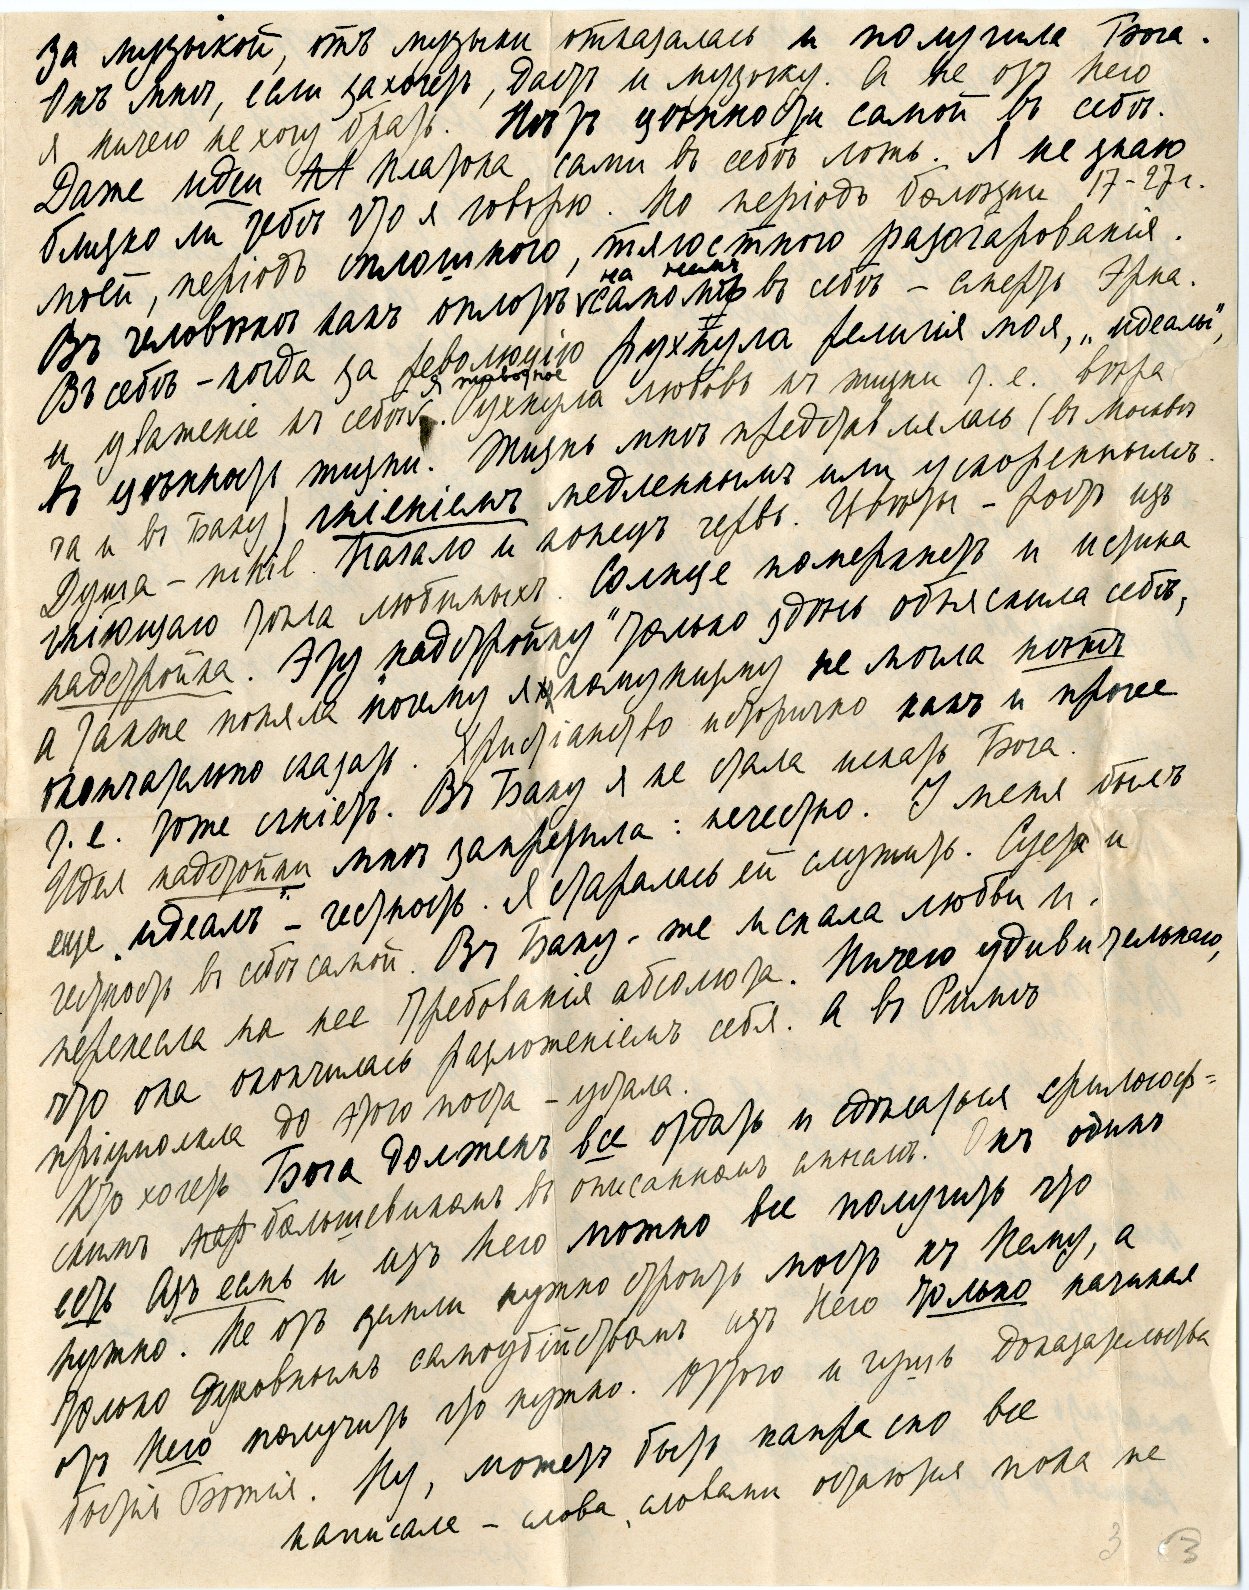 за музыкой, отъ музыки отказалась и получила Бога.
Онъ мнѣ, если захочетъ, дастъ и музыку. А не отъ Него
я ничего не хочу брать. Нѣтъ цѣнности самой въ себѣ.
Даже идеи Платона сами въ себѣ ложь. Я не знаю
близко ли тебѣ что я говорю. Но періодъ болѣзни 17-27 г.
моей, періодъ сплошного, тягостного разочарованія.
Въ человѣкѣ какъ оплотѣ на немъ самомъ въ себѣ – смерть Эрна.
Въ себѣ – когда за революцію рухнула религія моя, „идеалы",
и уваженіе къ себѣ. Рухнула любовь къ жизни т. е. вѣра
въ цѣнность жизни. Жизнь мнѣ представлялась (въ Москвѣ
та и въ Баку) гніеніемъ медленнымъ или ускореннымъ.
Душа – nihil. Начало и конецъ червь. Цвѣты – ростъ изъ
гніющаго тѣла любимыхъ. Солнце померкнетъ и истина
надстройка. Эту „надстройку" только здѣсь объяснила себѣ,
а также поняла почему я коммунизму не могла нѣтъ
окончательно сказать. Христіанство исторично какъ и прочее
т. е. тоже сгніетъ. Въ Баку я не стала искать Бога.
Идея надстройки мнѣ запретила: нечестно. У меня былъ
еще „идеалъ" – честность. Я старалась ей служить. Суета и
честность въ себѣ самой. Въ Баку-же искала любви и
перенесла на нее требованія абсолюта. Ничего удивительнаго,
что она окончилась разложеніемъ себя. А въ Римѣ
пріумолкла до этого поста – устала.
Кто хочетъ Бога долженъ все отдать и сдѣлаться философ=
скимъ большевикомъ въ описанномъ смыслѣ. Онъ одинъ
есть Азъ есмь и изъ Него можно все получить что
нужно. Не отъ земли нужно строить мостъ къ Нему, а
только духовнымъ самоубійствомъ изъ Него только начиная
отъ Него получить что нужно. Этого и чуешь доказательства
бытія Божія. Ну, можетъ быть напрасно все
написала – слова, словами остаются пока не
3 3